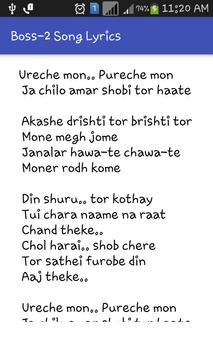 74% 11:20 AM
Boss-2 Song Lyrics
Ureche mon.. Pureche mon
Ja chilo amar shobi tor haate
Akashe drishti tor brishti tor
Mone megh jome
Janalar hawa-te chawa-te
Moner rodh kome
Din shuru.. tor kothay
Tui chara naame na raat
Chand theke..
Chol harai.. shob chere
Tor sathei furobe din
Aaj theke..
Ureche mon.. Pureche mon